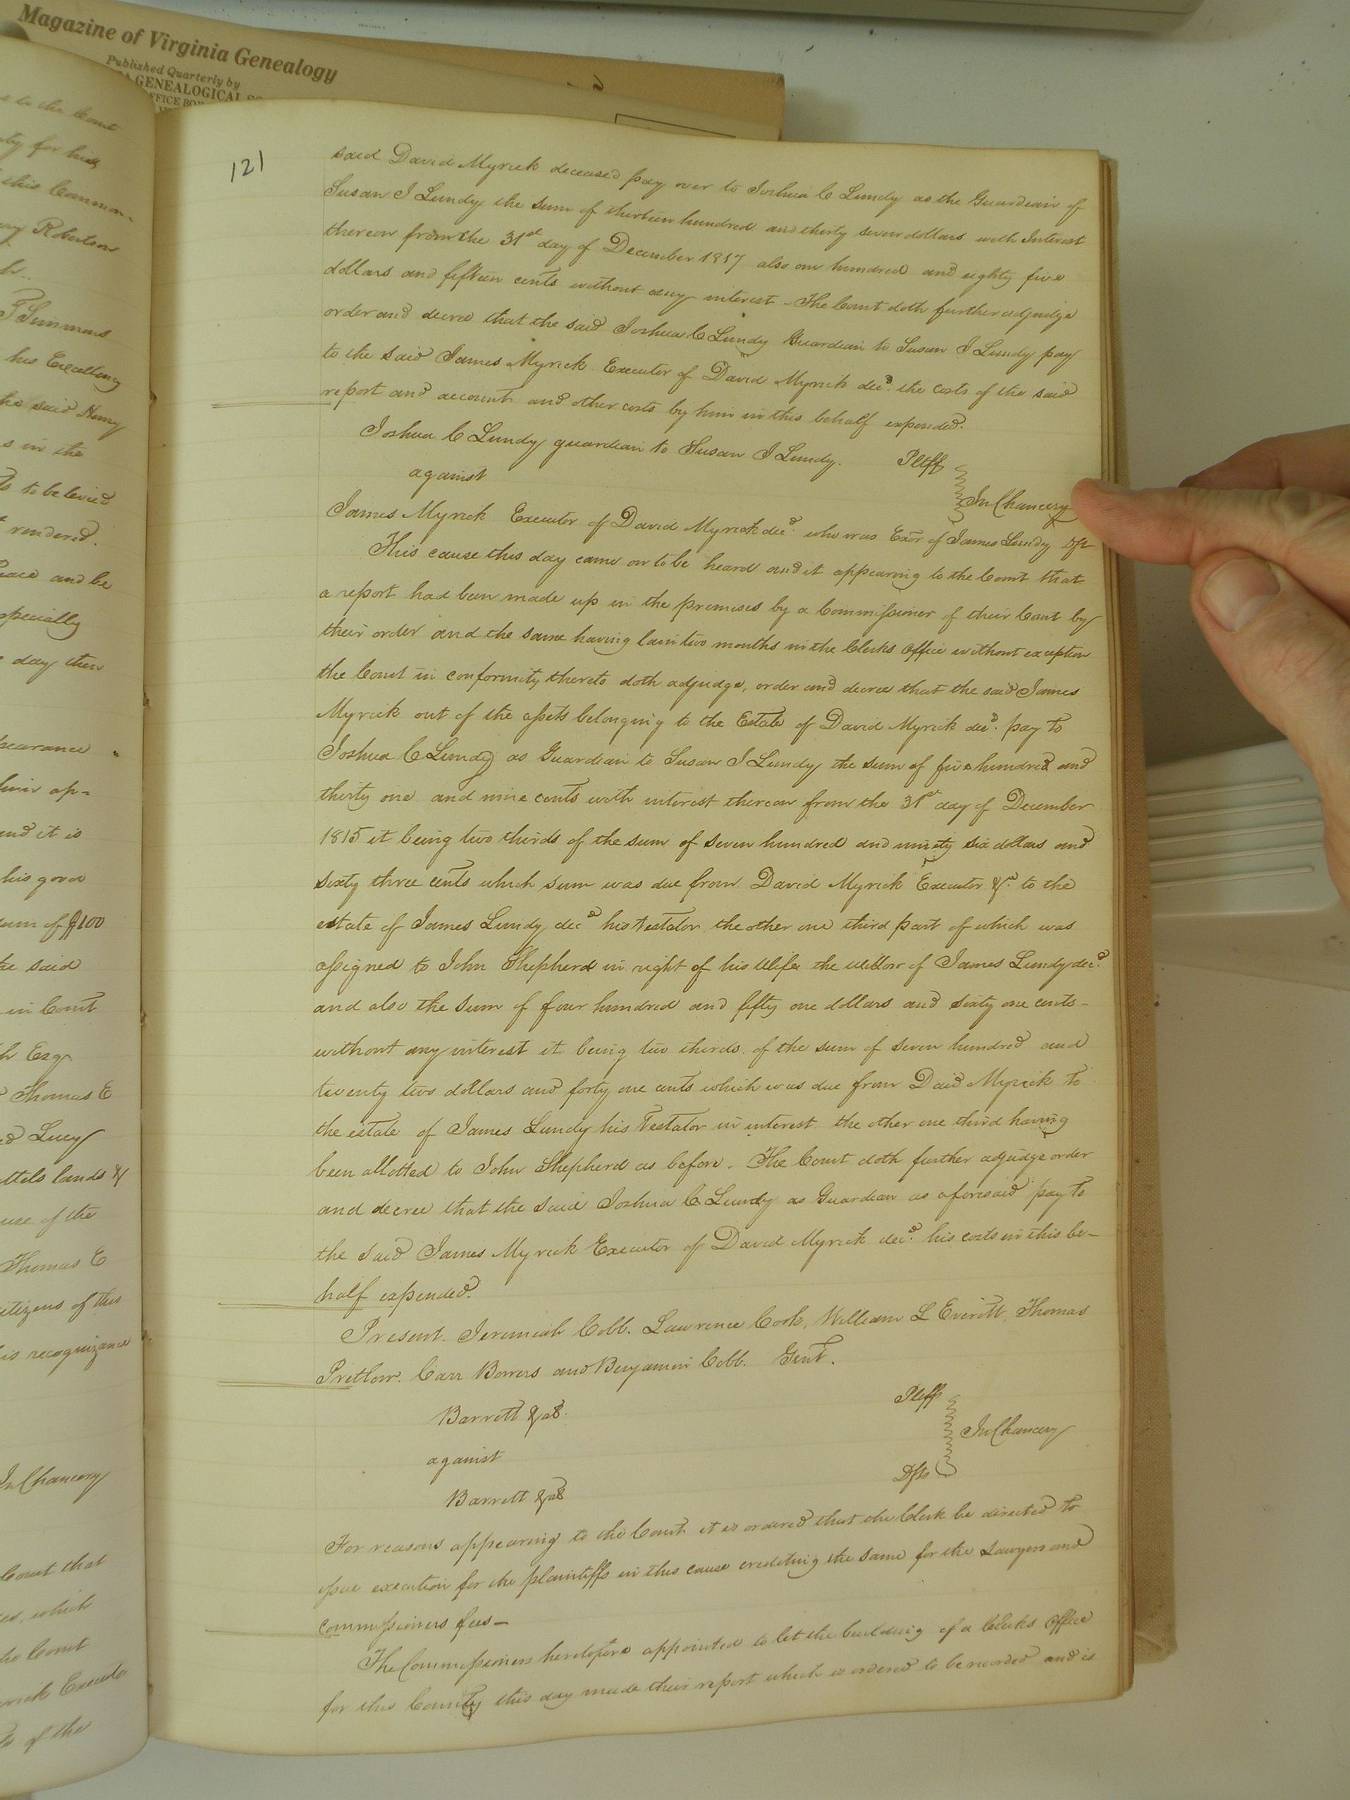 Magazine of Virginia Genealogy
Published Quarterly by
GENEALOGICAL
121
said David Myrick deceased pay over to Joshua C Lundy as the Guardian of
Susan J Lundy the sum of thirteen hundred and thirty seven dollars with Interest
thereon from the 31st day of December 1817 also one hundred and eighty five
dollars and fifteen cents without any interest - The Court doth further adjudge
order and decree that the said Joshua C Lundy Guardian to Susan J Lundy pay
to the said James Myrick Executor of David Myrick decd. the costs of the said
report and account and other costs by him in this behalf expended.
Joshua C Lundy guardian to Susan J Lundy. Pltff
against
In Chancery
James Myrick Executor of David Myrick decd. who was Exor of James Lundy Dft
This cause this day came on to be heard and it appearing to the Court that
a report had been made up in the premises by a Commissioner of their Court by
their order and the same having lain two months in the Clerks Office without exception
the Court in conformity thereto doth adjudge, order and decree that the said James
Myrick out of the assets belonging to the Estate of David Myrick decd. pay to
Joshua C Lundy as Guardian to Susan J Lundy the sum of five hundred and
thirty one and nine cents with interest thereon from the 31st day of December
1815 it being two thirds of the sum of seven hundred and ninety six dollars and
sixty three cents which sum was due from David Myrick Executor &c. to the
estate of James Lundy decd his Testator the other one third part of which was
assigned to John Shepherd in right of his Wife the Widow of James Lundy decd.
and also the sum of four hundred and fifty one dollars and sixty one cents -
without any interest it being two thirds of the sum of seven hundred and
twenty two dollars and forty one cents which was due from Daid Myrick to
the estate of James Lundy his Testator in interest the other one third having
been allotted to John Shepherd as before. The Court doth further adjudge order
and decree that the said Joshua C Lundy as Guardian as aforesaid pay to
the said James Myrick Executor of David Myrick decd. his costs in this be-
half expended.
Present. Jeremiah Cobb. Lawrence Cook, William L Everitt, Thomas
Pretlow. Carr Bowers and Benjamin Cobb. Gent.
Barrett &als. Pltffs
against In Chancery
Barrett &als Dfts
For reasons appearing to the Court it is ordered that the Clerk be directed to
issue execution for the plaintiffs in this cause crediting the same for the Lawyers and
commissioners fees -
The Commissioners heretofore appointed to let the building of a Clerks Office
for this County this day made their report which is ordered to be recorded and is